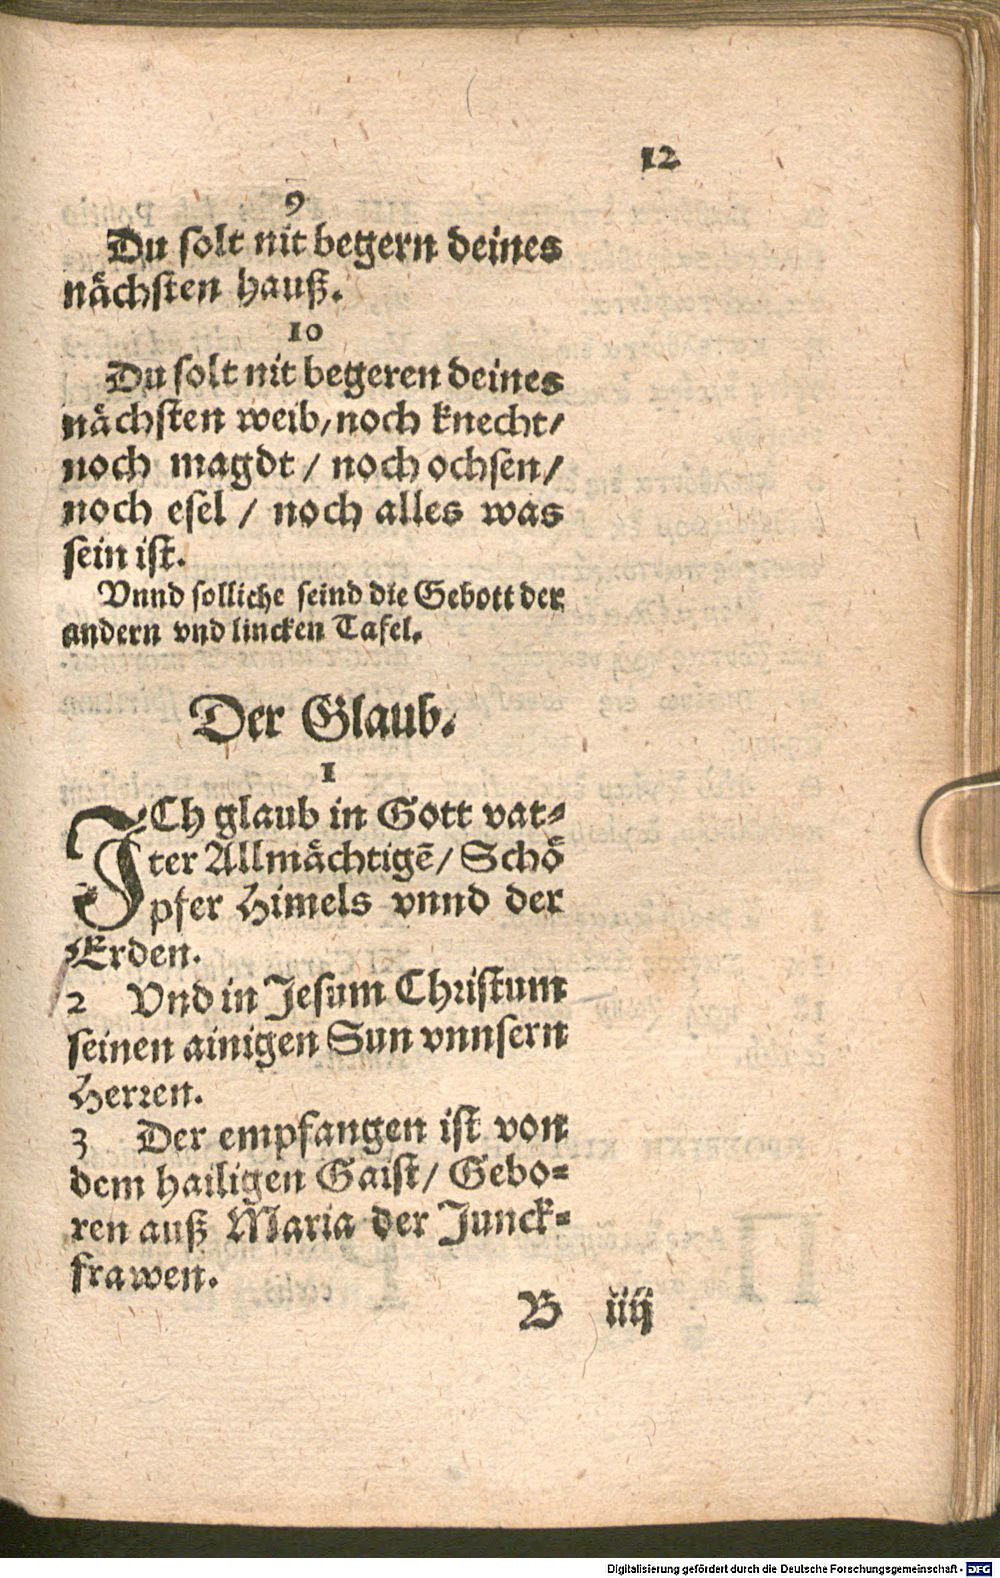 12
9
Du solt nit begern deines
nächsten hauß.
10
Du solt nit begeren deines
nächsten weib/ noch knecht/
noch magdt / noch ochsen/
noch esel / noch alles was
sein ist.
Vnnd solliche seind die Gebott der
andern vnd lincken Tafel.
Der Glaub.
1
ICh glaub in Gott vat-
ter Allmächtigẽ/ Schö
pfer Himels vnnd der
Erden.
2 Vnd in Jesum Christum
seinen ainigen Sun vnnsern
Herren.
3 Der empfangen ist von
dem hailigen Gaist/ Gebo-
ren auß Maria der Junck-
frawen.
B iiij
Digitalisierung gefördert durch die Deutsche Forschungsgemeinschaft - DFG